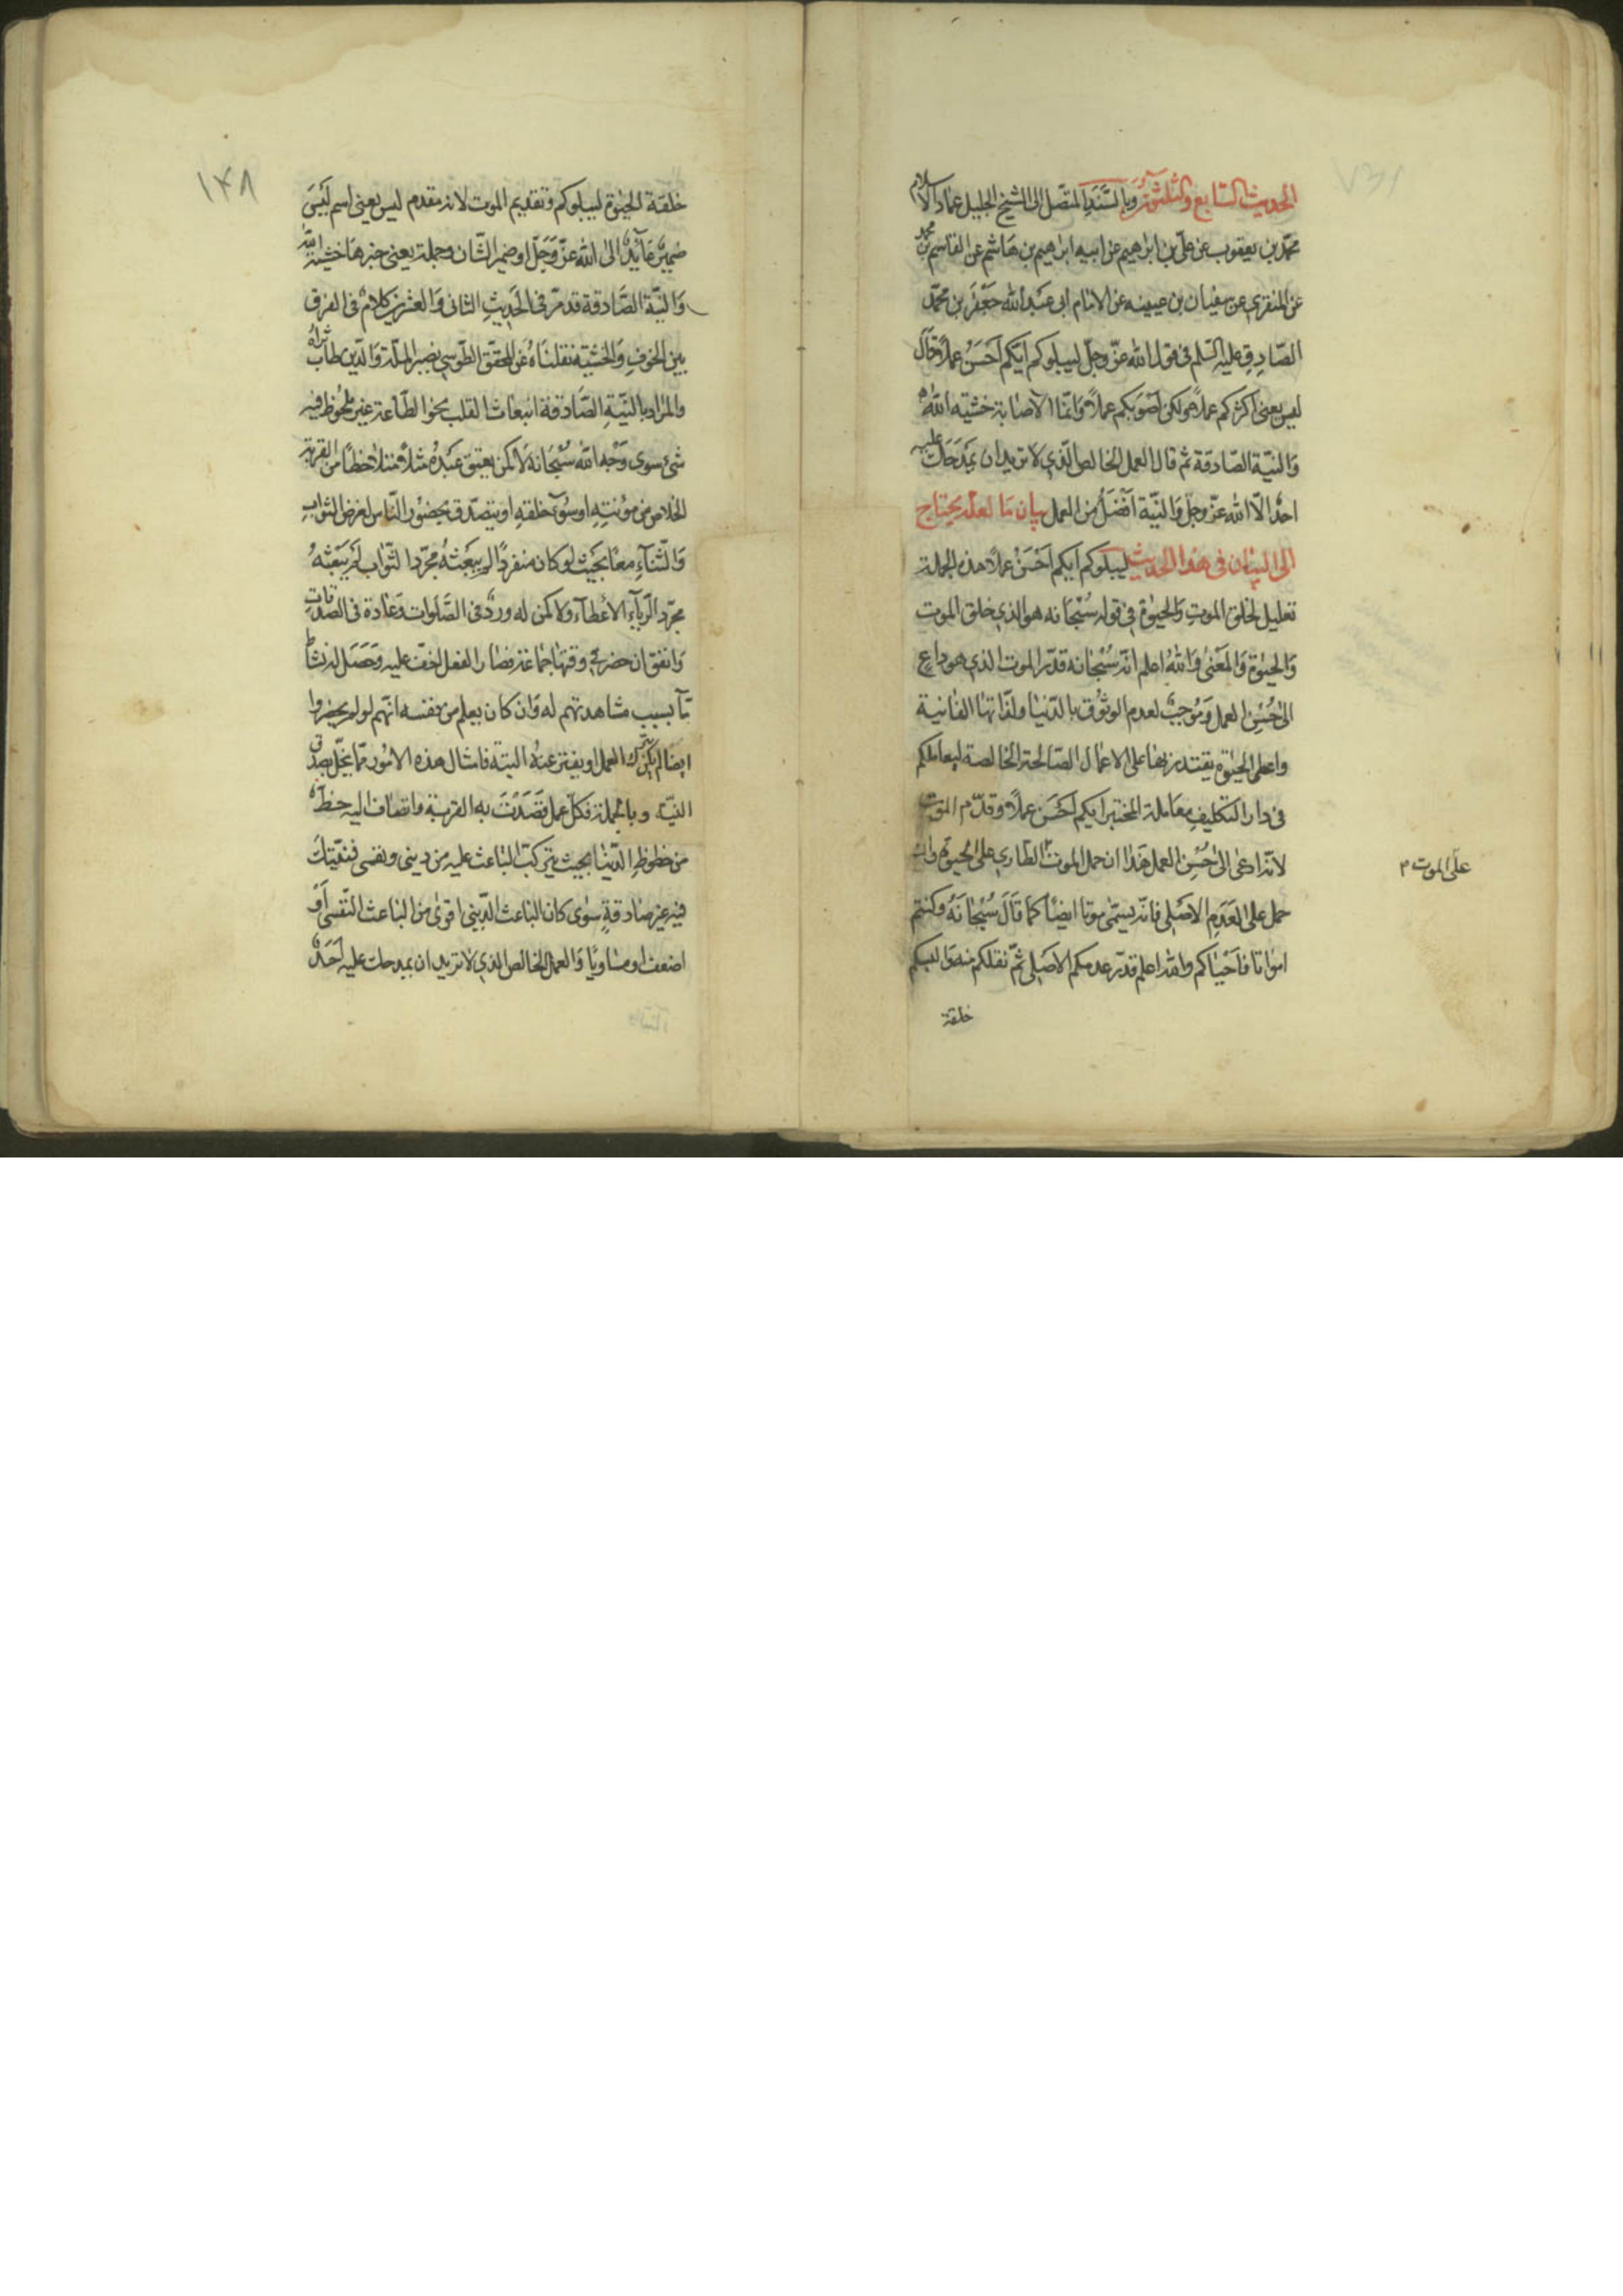 الحديث السابع والثلثون وبالسند المتصل الى الشيخ الجليل عماد الاسلام
محمد بن يعقوب عن علي بن ابراهيم عن ابيه ابراهيم بن هاشم عن القاسم بن محمد
عن المنقري عن سفيان بن عيينه عن الامام ابي عبد الله جعفر بن محمد
الصادق عليه السلم في قول الله عز وجل ليبلوكم ايكم احسن عملا قال
ليس يعني اكثركم عملا ولكن اصوبكم عملا وانما الاصابة خشية الله
والنية الصادقة ثم قال العمل الخالص الذي لا تريد ان يمدحك عليه
احد الا الله عز وجل والنية افضل من العمل بيان ما لعله يحتاج
الى البيان في هذا الحديث ليبلوكم ايكم احسن عملا هذه الجملة
تعليل لخلق الموت والحيوة في قوله سبحانه هو الذي خلق الموت
والحيوة والمعنى والله اعلم انه سبحانه قدر الموت الذي هو داع
الى حسن العمل وموجب لعدم الوثوق بالدنيا ولذاتها الفانية
واعطى الحيوة يقتدر بها على الاعمال الصالحة الخالصة ليعاملكم
في دار التكليف معاملة المختبر ايكم احسن عملا وقدم الموت
لانه ادعى الى حسن العمل هذا ان حمل الموت الطاري على الحيوة وان
على الموت م
حمل على العدم الاصلي فانه يسمى موتا ايضا كما قال سبحانه وكنتم
امواتا فاحياكم والله اعلم قدر عدمكم الاصلي ثم نقلكم منه والبسكم
خلقة
١٤٨
خلقة الحيوة ليبلوكم وتقديم الموت لانه مقدم ليس يعني اسم ليس
ضمير عايد الى الله عز وجل او ضمير الشان وجملة يعني خبرها خشية الله
والنية الصادقة قد مر في الحديث الثاني والعشرين كلام في الفرق
بين الخوف والخشية نقلناه عن المحقق الطوسي نصير الملة والدين طاب ثراه
والمراد بالنية الصادقة انبعاث القلب نحو الطاعة غير ملحوظ فيه
شيء سوى وجه الله سبحانه لا كمن يعتق عبده مثلا ملاحظا مع القربة
الخلاص من مؤنته او سوء خلقه او يتصدق بحضور الناس لغرض الثواب
والثناء معا بحيث لو كان منفردا لم يبعثه مجرد الثواب لم يبعثه
مجرد الرياء الاعطاء ولا كمن له ورد في الصلوات وعادة في الصدقات
واتفق ان حضر في وقتها جماعة فصار الفعل اخف عليه وحصل له نشاط
ما بسبب مشاهدتهم له وان كان يعلم من نفسه انهم لو لم يحضروا
ايضا لم يكن يترك العمل او يفتر عنه البتة فامثال هذه الامور مما يخل بصدق
النية وبالجملة فكل عمل قصدت به القربة وانضاف اليه حظ
من حظوظ الدنيا بحيث تركب الباعث عليه من ديني ونفسي فنيتك
فيه غير صادقة سوى كان الباعث الديني اقوى من الباعث النفسي او
اضعف او مساويا والعمل الخالص الذي لا تريد ان يمدحك عليه احد